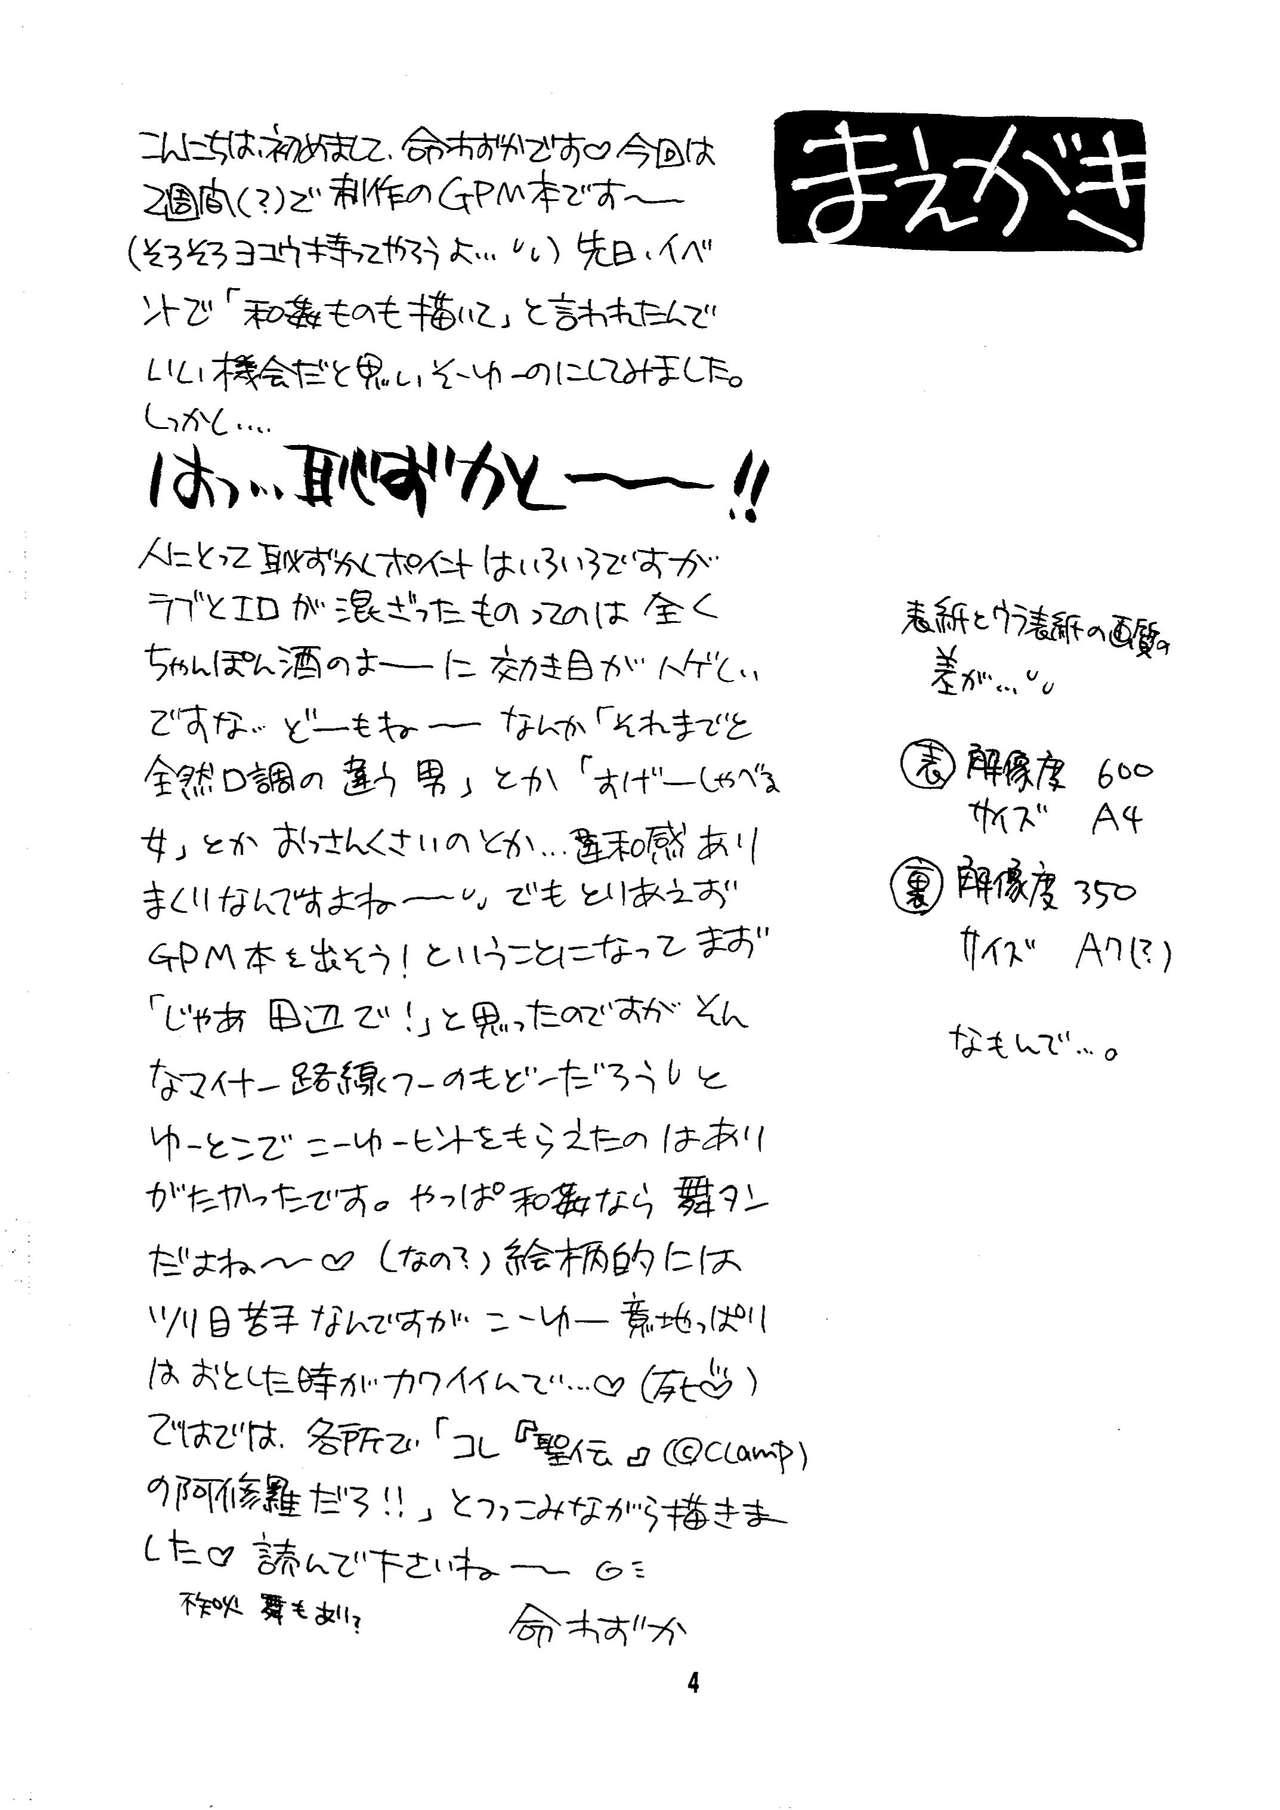 まえがき
こんにちは、初めまして、命わずかです♡今回は
2週間(?)で制作のGPM本です〜
(そろそろヨユウ持ってやろうよ…)先日、イベ
ントで「和姦ものも描いて」と言われたんで
いい機会だと思いそーゆーのにしてみました。
しっかし‥‥
はっ…恥ずかしー〜!!
人にとって恥ずかしポイントはいろいろですが
ラブとエロが混ざったものってのは全く
ちゃんぽん酒のよーに効き目がハゲしい
ですな…どーもねー なんか「それまでと
全然口調の違う男」とか「すげーしゃべる
女」とかおっさんくさいのとか…違和感あり
まくりなんですよね〜でもとりあえず
GPM本を出そう!ということになってまず
「じゃあ田辺で!」と思ったのですがそん
なマイナー路線くつーのもどーだろうしと
ゆーとこでこーゆーヒントをもらえたのはあり
がたかったです。やっぱ和姦なら舞タン
だよね〜♡(なの?)絵柄的には
ツリ目苦手なんですがこーゆー意地っぱり
はおとした時がカワイイんで…♡(死♡)
ではでは、各所で「コレ『聖伝』(©CLAMP)
の阿修羅だろ!!」とつっこみながら描きま
した♡読んで下さいねー
舞もあり?
命わずか
表紙とウラ表紙の画質の
差が…
表 解像度 600
サイズ A4
裏 解像度 350
サイズ A7(?)
なもんで…。
4